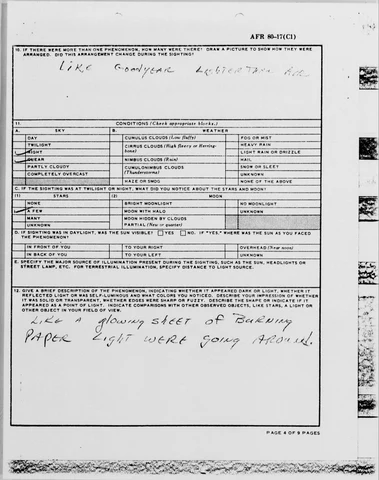 AFR 80-17(C1)
10. IF THERE WERE MORE THAN ONE PHENOMENON, HOW MANY WERE THERE? DRAW A PICTURE TO SHOW HOW THEY WERE
ARRANGED. DID THIS ARRANGEMENT CHANGE DURING THE SIGHTING?
LIKE GOODYEAR LIGHTER THAN AIR
11. CONDITIONS (Check appropriate blocks.)
A. SKY B. WEATHER
DAY CUMULUS CLOUDS (Low fluffy) FOG OR MIST
TWILIGHT CIRRUS CLOUDS (High fleecy or Herring-bone) HEAVY RAIN
NIGHT LIGHT RAIN OR DRIZZLE
CLEAR NIMBUS CLOUDS (Rain) HAIL
PARTLY CLOUDY CUMULONIMBUS CLOUDS (Thunderstorms) SNOW OR SLEET
COMPLETELY OVERCAST UNKNOWN
HAZE OR SMOG NONE OF THE ABOVE
C. IF THE SIGHTING WAS AT TWILIGHT OR NIGHT, WHAT DID YOU NOTICE ABOUT THE STARS AND MOON?
(1) STARS (2) MOON
NONE BRIGHT MOONLIGHT NO MOONLIGHT
A FEW MOON WITH HALO UNKNOWN
MANY MOON HIDDEN BY CLOUDS
UNKNOWN PARTIAL (New or quarter)
D. IF SIGHTING WAS IN DAYLIGHT, WAS THE SUN VISIBLE? YES NO. IF "YES," WHERE WAS THE SUN AS YOU FACED
THE PHENOMENON?
IN FRONT OF YOU TO YOUR RIGHT OVERHEAD (Near noon)
IN BACK OF YOU TO YOUR LEFT UNKNOWN
E. SPECIFY THE MAJOR SOURCE OF ILLUMINATION PRESENT DURING THE SIGHTING, SUCH AS THE SUN, HEADLIGHTS OR
STREET LAMP, ETC. FOR TERRESTRIAL ILLUMINATION, SPECIFY DISTANCE TO LIGHT SOURCE.
12. GIVE A BRIEF DESCRIPTION OF THE PHENOMENON, INDICATING WHETHER IT APPEARED DARK OR LIGHT, WHETHER IT
REFLECTED LIGHT OR WAS SELF-LUMINOUS AND WHAT COLORS YOU NOTICED. DESCRIBE YOUR IMPRESSION OF WHETHER
IT WAS SOLID OR TRANSPARENT, WHETHER EDGES WERE SHARP OR FUZZY. DESCRIBE THE SHAPE OR INDICATE IF IT
APPEARED AS A POINT OF LIGHT. INDICATE COMPARISONS WITH OTHER OBSERVED OBJECTS, LIKE STARS, A LIGHT OR
OTHER OBJECT IN YOUR FIELD OF VIEW.
LIKE A glowing SHEET OF BURNING
PAPER LIGHT WERE GOING AROUND.
PAGE 4 OF 9 PAGES